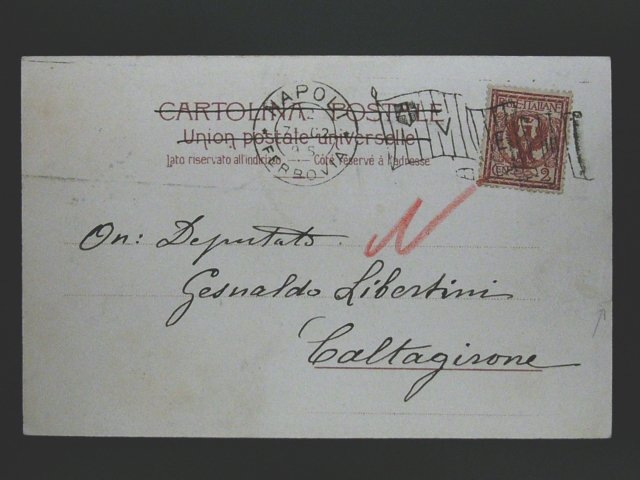 CARTOLINA POSTALE
Union postale universelle
Lato riservato all'indirizzo Côté réservé à l'adresse
NAPOLI
FERROVIA
POSTE ITALIANE
2
N
On: Deputato
Gesualdo Libertini
Caltagirone